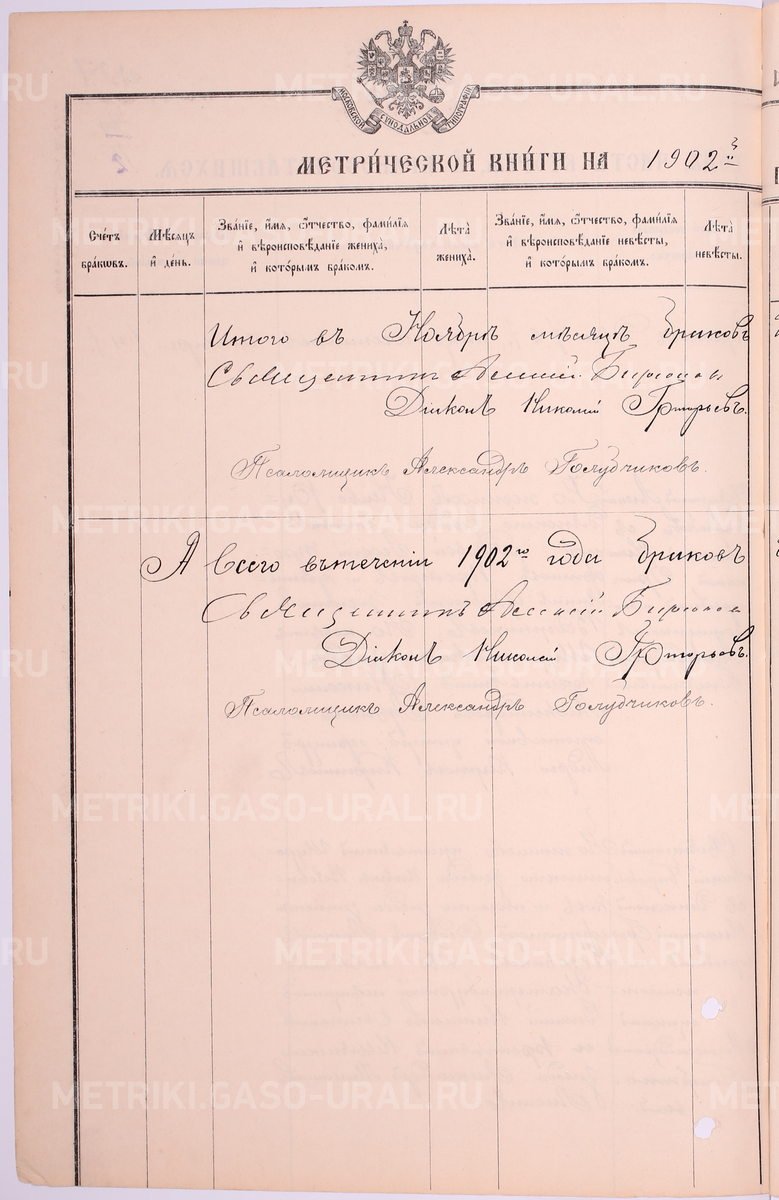 МОСКОВСКОЙ СѴНОДАЛЬНОЙ ТИПОГРАФІИ
МЕТРИ́ЧЕСКОЙ КНИ́ГИ НА 1902 й
Сче́тъ бра́кѡвъ.
Мѣ́сяцъ и҆ де́нь.
Зва́нїе, и҆́мя, ѻ҆́тчество, фами́лїя и҆ вѣроисповѣ́данїе жениха̀, и҆ кото́рымъ бра́комъ.
Лѣ́та жениха̀.
Зва́нїе, и҆́мя, ѻ҆́тчество, фами́лїя и҆ вѣроисповѣ́данїе невѣ́сты, и҆ кото́рымъ бра́комъ.
Лѣ́та невѣ́сты.
Итого въ Ноябрѣ мѣсяцѣ браковъ
Священникъ Алексій
Діаконъ Николай Григорьевъ.
Псаломщикъ Александръ Голубчиковъ.
А всего втеченіи 1902 го года браковъ
Священникъ Алексій
Діаконъ Николай Григорьевъ.
Псаломщикъ Александръ Голубчиковъ.
METRIKI.GASO-URAL.RU